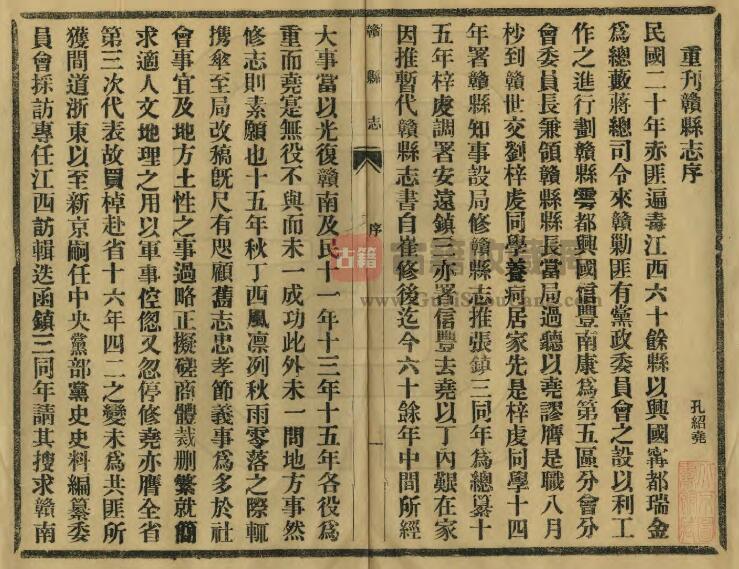 重刊贛縣志序
孔紹堯
民國二十年赤匪遍毒江西六十餘縣以興國寗都瑞金
爲總藪蔣總司令來贛勦匪有黨政委員會之設以利工
作之進行劃贛縣雩都興國信豐南康爲第五區分會分
會委員長兼領贛縣縣長當局過聽以堯謬膺是職八月
杪到贛世交劉梓虔同學養疴居家先是梓虔同學十四
年署贛縣知事設局修贛縣志推張鎮三同年爲總纂十
五年梓虔調署安遠鎮三亦署信豐去堯以丁內艱在家
因推暫代贛縣志書自重修後迄今六十餘年中間所經
贛縣志
序
一
大事當以光復贛南及民十一年十三年十五年各役爲
重而堯寔無役不與而未一成功此外未一問地方事然
修志則素願也十五年秋丁西風凛冽秋雨零落之際輒
携傘至局改稿旣尺有咫顧舊志忠孝節義事爲多於社
會事宜及地方土性之事過略正擬磋商體裁删繁就簡
求適人文地理之用以軍事倥偬又忽停修堯亦膺全省
第三次代表故買棹赴省十六年四二之變未爲共匪所
獲間道浙東以至新京嗣任中央黨部黨史史料編纂委
員會採訪專任江西訪輯迭函鎮三同年請其搜求贛南
古籍
www.GujiShuKuang.com